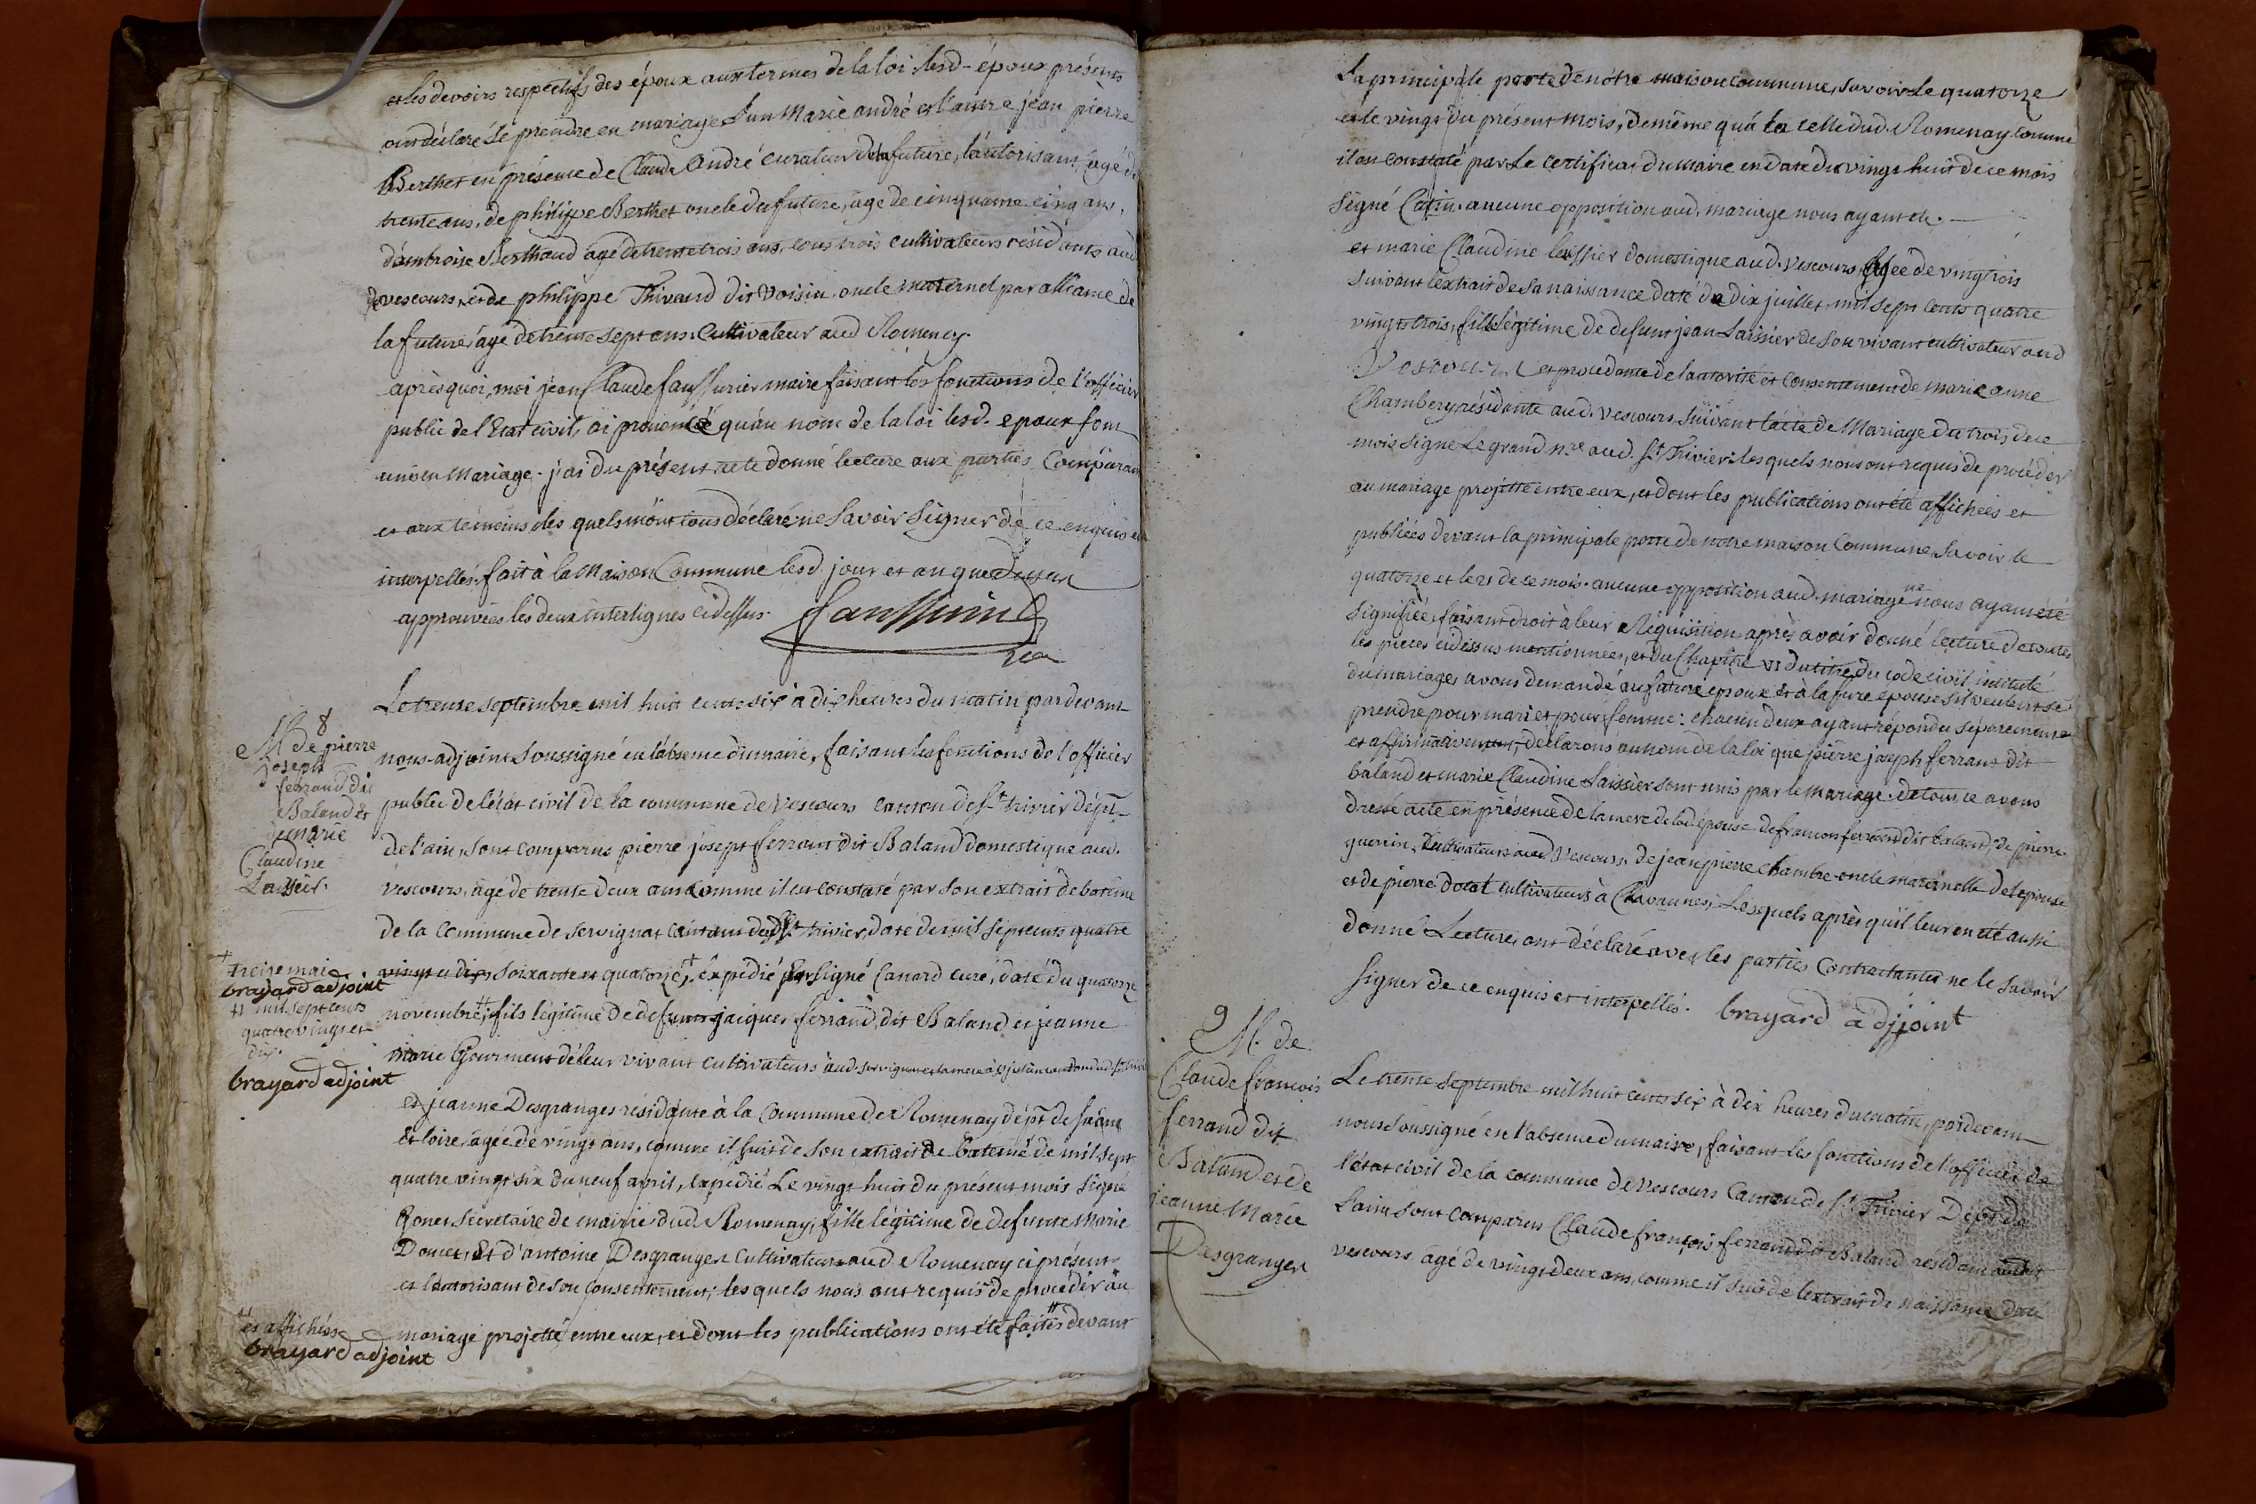 et les devoirs respectifs des époux aux termes de la loi. lesd- époux présents
ont déclaré se prendre en mariage L'un Marie andré et l'autre jean pièrre
Berthet en présence de Claude André curateur de la future, l'autorisant, agé de
trente ans, de philippe Berthet oncle du future, agé de cinquante cinq ans,
d'ambroise Berthaud agé de trente trois ans, tous trois cultivateurs résidants aud
vescours, et de philippe Thivaud dit Voisin oncle maternel par alliance de
la future, agé de trente sept ans Cultivateur aud Romenay
après quoi, moi jean Claude faussurier maire faisant les fonctions de l'officier
public de l'Etat civil, ai prononcé qu'au nom de la loi lesd. epoux sont
unis en Mariage. j'ai du présent acte donné lecture aux parties Comparant
et aux témoins les quels m'ont tous déclaré ne savoir signer de ce enquis et
interpellés. fait à la Maison Commune lesd. jour et an que dessus
approuvées les deux interlignes cidessus
Le trente septembre mil huit cents six à dix heures du matin pardevant
8
M. de pierre
joseph
ferrand dit
Baland et
de marie
Claudine
Laissier.
nous adjoint soussigné en l'absence du maire, faisant les fonctions de l'officier
public de l'état civil de la commune de Vescours canton de St. trivier dépt.
de l'ain, sont comparus pierre joseph ferrant dit Baland domestique aud.
vescours, agé de trente deux ans Comme il en constaté par son extrait de batême
de la Commune de servignat canton dud St. trivier, daté de mil sept cents quatre
+
treize mai
brayard adjoint
vingt et dix, soixante et quatorze +, expédié par signé Canard curé, daté du quatorze
++ mil sept cents
quatre vingt et
dix.
brayard adjoint
novembre ++, fils légitime de defunts jacques ferrand dit Baland, et jeanne
marie Gourmeut de leur vivant cultivateurs aud.
et jeanne Desgranges résidante à la Commune de Romenay dépt. de saône
et loire, agée de vingt ans, comme il suit de son extrait de batême de mil sept
quatre vingt six du neuf april, expédié Le vingt huit du présent mois signé
secretaire de mairie dud. Romenay, fille légitime de defunte Marie
Donet, Et d'antoine Desgranges cultivateur aud Romenay ci présent
et l'autorisant de son consentement; les quels nous ont requis de procéder au
++
et affichées
brayard adjoint
mariage projetté entre eux, et dont les publications ont été faites ++ devant
La principale porte de nôtre maison commune, savoir Le quatorze
et le vingt du présent mois, de même qu'à la celle dud. Romenay comme
il en constaté par Le certificat du maire en date du vingt huit de ce mois
signé Catin. aucune opposition aud. mariage nous ayant ete. —
et marie Claudine laissier domestique aud. vescours, agée de vingt trois
suivant l'extrait de sa naissance daté du dix juillet mil sept cents quatre
vingt trois, fille légitime de defunt jean Laissier de son vivant cultivateur aud
Vescours, et procédante de l'autorité et consentement de marie anne
Chambery résidante aud. vescours, suivant l'acte de Mariage du trois de ce
mois signé Legrand nre. aud. St. Trivier. lesquels nous ont requis de procéder
au mariage projetté entre eux, et dont les publications ont été affichées et
publiées devant la principale porte de notre maison Commune, savoir le
quatorze et le 21 de ce mois. aucune opposition aud. mariage ne nous ayant été
signifiée, faisant droit à leur Réquisition, après avoir donné lecture de toutes
les pièces cidessus mentionnées, et du Chapitre VI du titre du code civil intitulé
du mariage, avons demandé au future epoux et à la fure épouse s'il veulent se
prendre pour mari et pour femme: chacun deux ayant répondu séparement
et affirmativement, déclarons au nom de la loi que pierre joseph ferrant dit
baland et marie Claudine Laissier sont unis par le mariage. de tout ce avons
dressé acte en présence de la mere de lad épouse de francois ferrand dit baland, de pierre
guerin, Cultivateurs aud Vescours, de jean pierre Chambre oncle maternelle de l'épouse
et de pierre Dotal cultivateurs à Chavannes, Lesquels après qu'il leur en été aussi
donné Lecture, ont déclaré avec les parties Contractantes ne le savoir
signer de ce enquis et interpellés. brayard adjoint
9
M. de
Claude francois
ferrand dit
Baland et de
jeanne Marie
Desgranges
Le trente septembre mil huit cents six à dix heures du matin, pardevant
nous soussigné en l'absence du maire, faisant les fonctions de l'officier de
l'état civil de la commune de Vescours Canton de St. Trivier Dépt. de
L'ain, sont comparus Claude françois ferrand dit Baland résidant audit
vescours agé de vingt deux ans, comme il suit de l'extrait de naissance daté